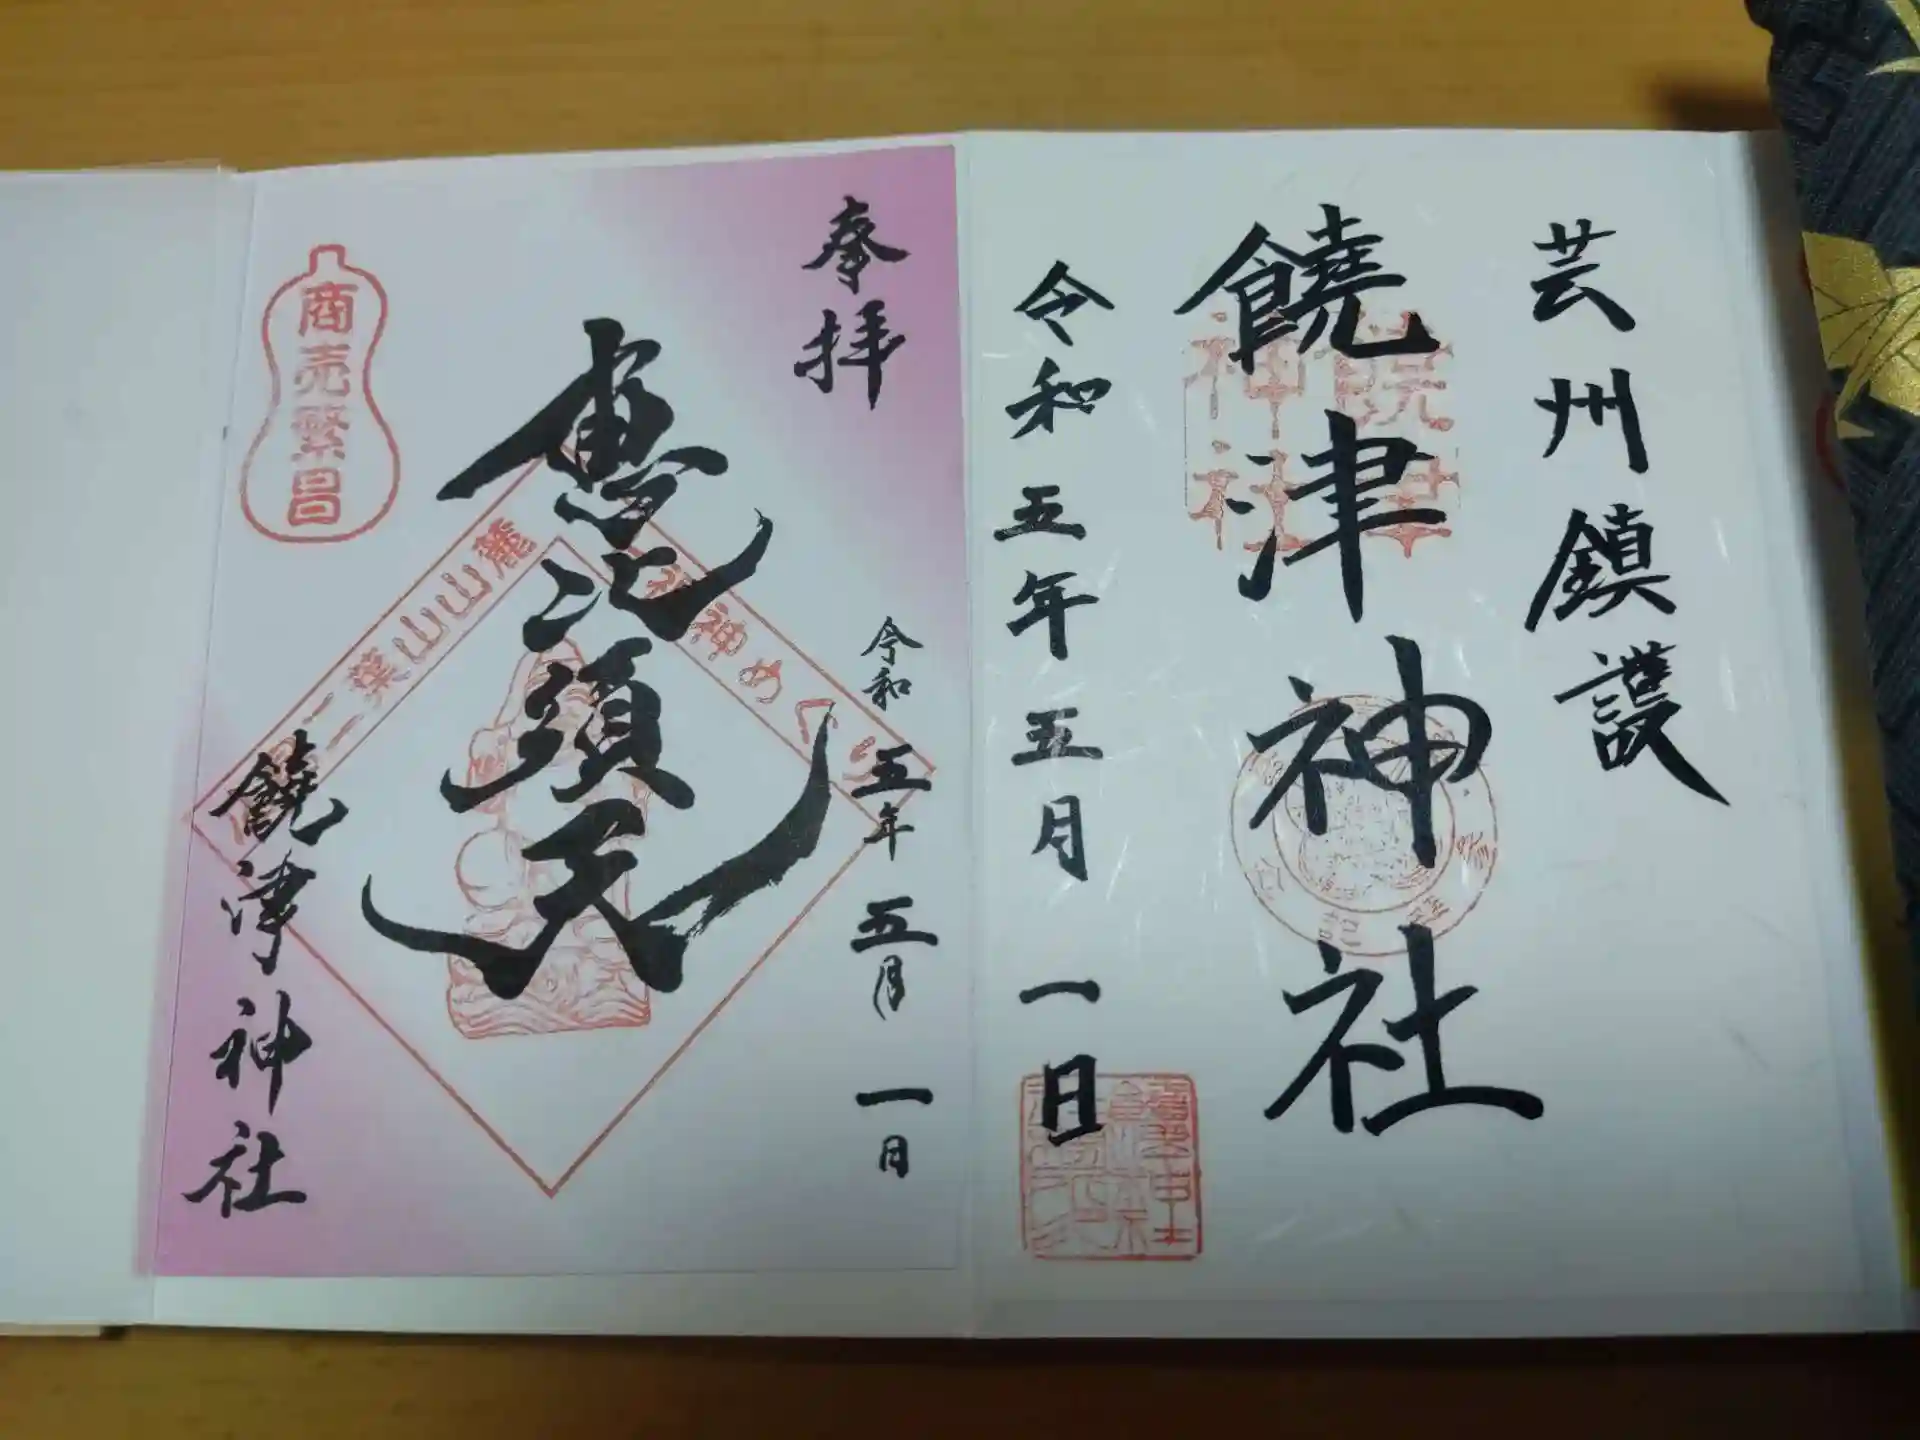 芸州鎮護
饒津神社
令和五年五月一日
奉拝
令和五年五月一日
恵比須天
二葉山山麓
神めぐり
商売繁昌
饒津神社